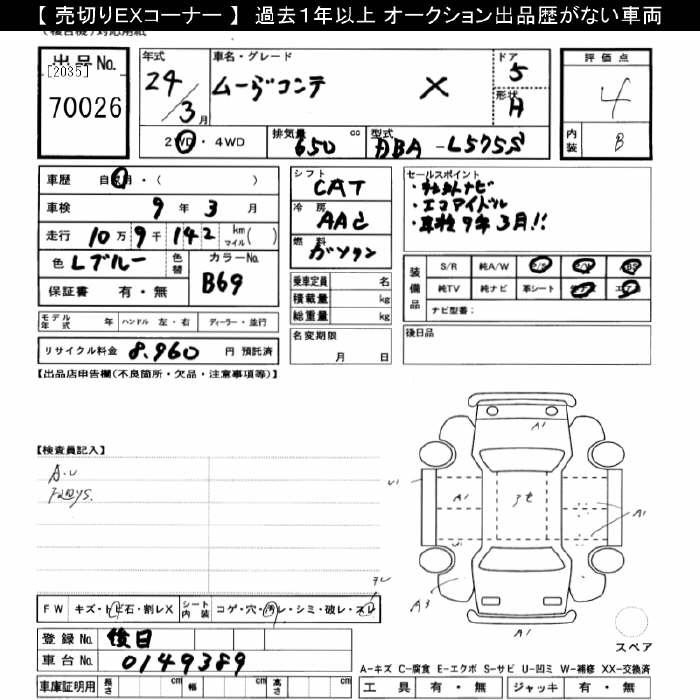 【 売切りEXコーナー 】 過去１年以上 オークション出品歴がない車両
(複合機)対応用紙
出品No.
[2035]
70026
年式
24/3月
車名・グレード
ムーヴコンテ X
ドア
5
形状
H
2WD・4WD
排気量 650 cc
型式 DBA-L575S
評価点
4
内装 B
車歴 自家用・( )
車検 9年 3月
走行 10万 9千 142 km マイル( )
色 Lブルー 色替
カラーNo. B69
保証書 有・無
シフト CAT
冷房 AAC
燃料 ガソリン
セールスポイント
・社外ナビ
・エコアイドル
・車検9年3月!!
乗車定員 名
積載量 kg
総重量 kg
装備品
S/R 純A/W P/S P/W
純TV 純ナビ 革シート エアB
ナビ型番：
モデル年式 年 ハンドル 左・右 ディーラー・並行
リサイクル料金 8,960 円 預託済
名変期限
月 日
後日品
【出品店申告欄(不良箇所・欠品・注意事項等)】
【検査員記入】
A.U
A1
U1
A1
A1
U1
A1
A3
A1
FW キズ・トビ石・割レX シート内装 コゲ・穴・汚レ・シミ・破レ・スレ
登録No. 後日
車台No. 0149389
車庫証明用 長さ cm 幅 cm 高さ cm
スペア
A-キズ C-腐食 E-エクボ S-サビ U-凹ミ W-補修 XX-交換済
工具 有・無 ジャッキ 有・無